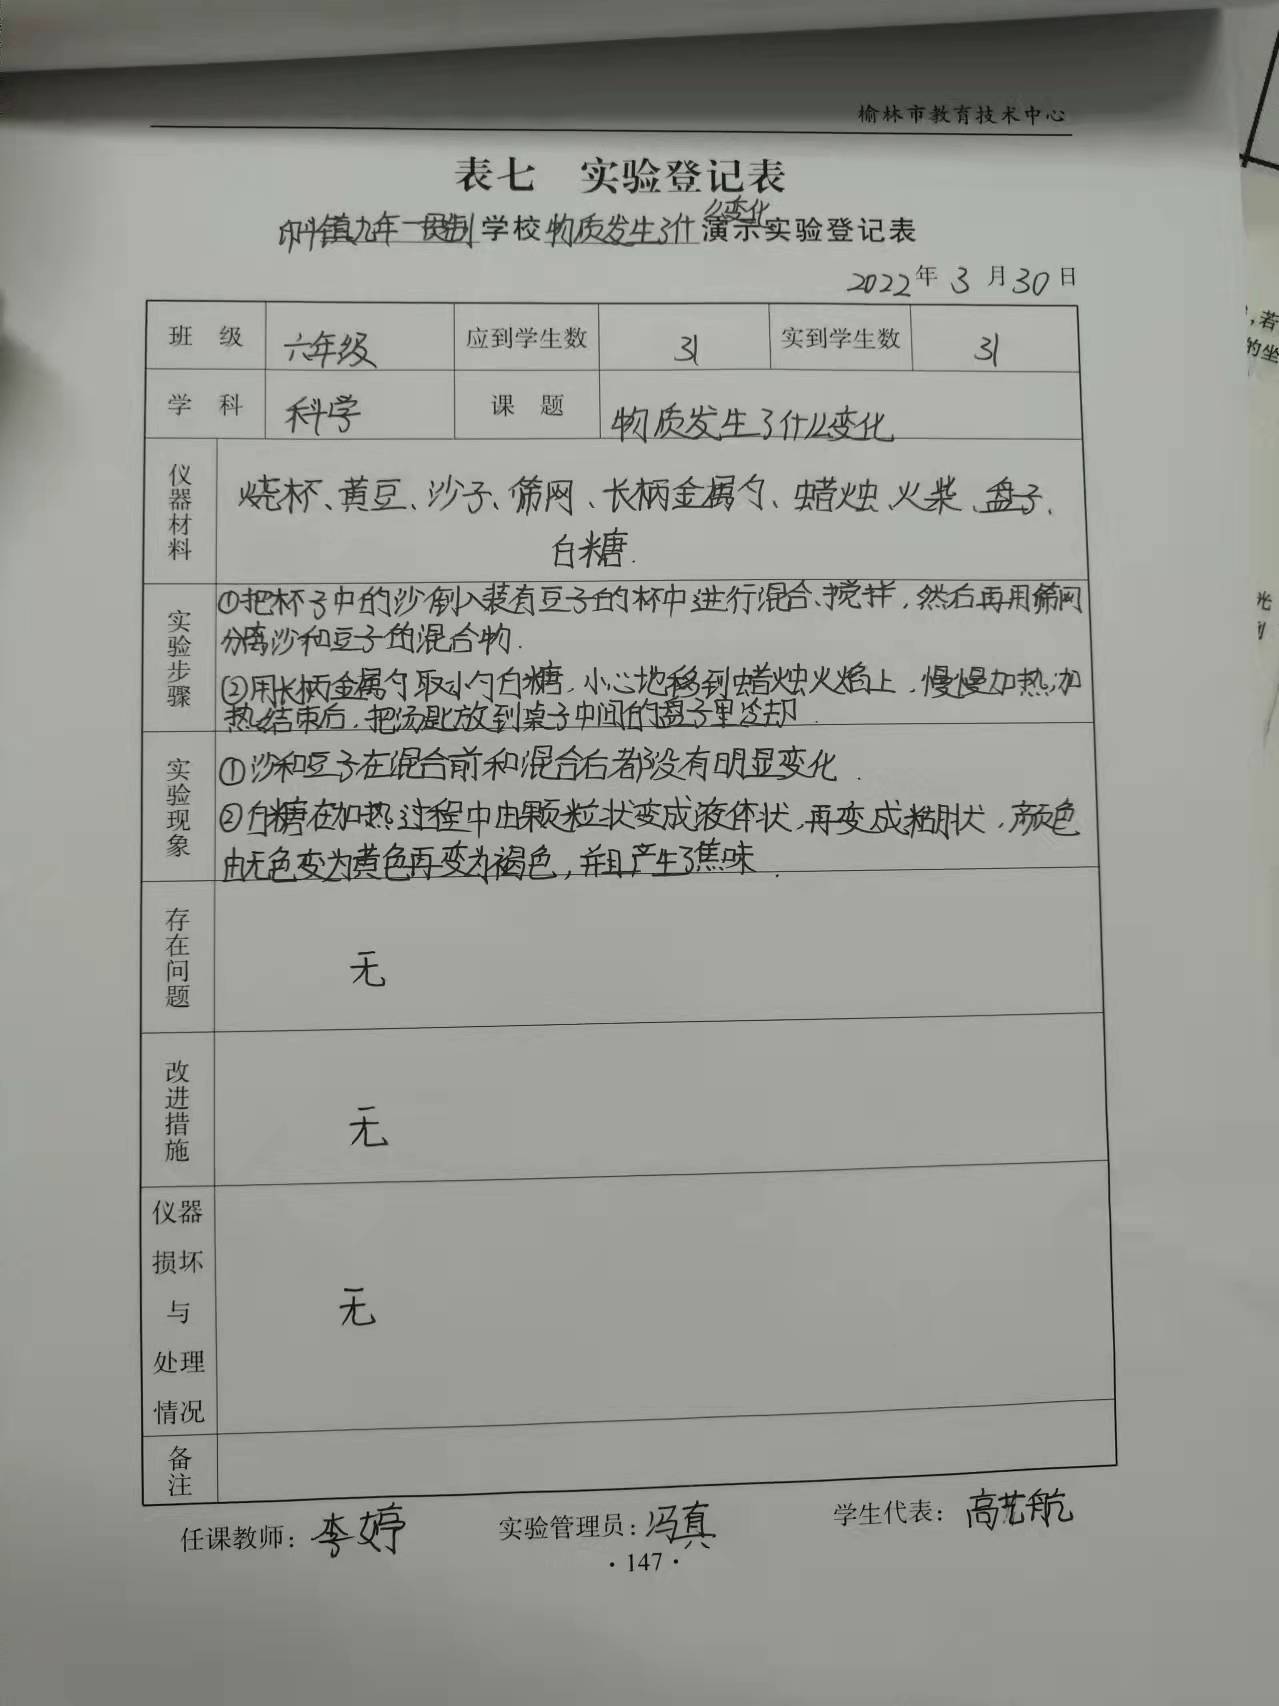 榆林市教育技术中心
表七 实验登记表
印斗镇九年一贯制学校物质发生了什么变化演示实验登记表
2022年3月30日
班级 六年级 应到学生数 31 实到学生数 31
学科 科学 课题 物质发生了什么变化
仪器材料
烧杯、黄豆、沙子、筛网、长柄金属勺、蜡烛、火柴、盘子、
白糖.
实验步骤
①把杯子中的沙倒入装有豆子的杯中进行混合、搅拌,然后再用筛网
分离沙和豆子的混合物.
②用长柄金属勺取小勺白糖,小心地移到蜡烛火焰上,慢慢加热,加
热结束后,把汤匙放到桌子中间的盘子里冷却.
实验现象
①沙和豆子在混合前和混合后都没有明显变化.
②白糖在加热过程中由颗粒状变成液体状,再变成糊状,颜色
由无色变为黄色再变为褐色,并且产生了焦味.
存在问题
无
改进措施
无
仪器
损坏
与
处理
情况
无
备注
任课教师:李婷 实验管理员:冯真 学生代表:高艺航
·147·
,若
的坐
光